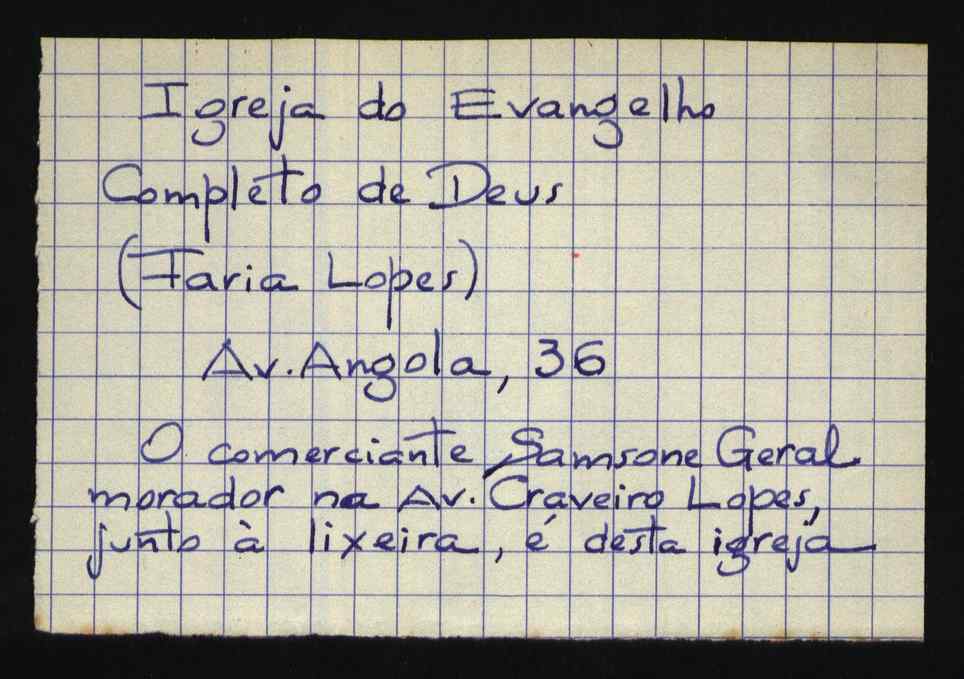 Igreja do Evangelho
Completo de Deus
(Faria Lopes)
Av. Angola, 36
O comerciante Samsone Geral
morador na Av. Craveiro Lopes,
junto à lixeira, é desta igreja